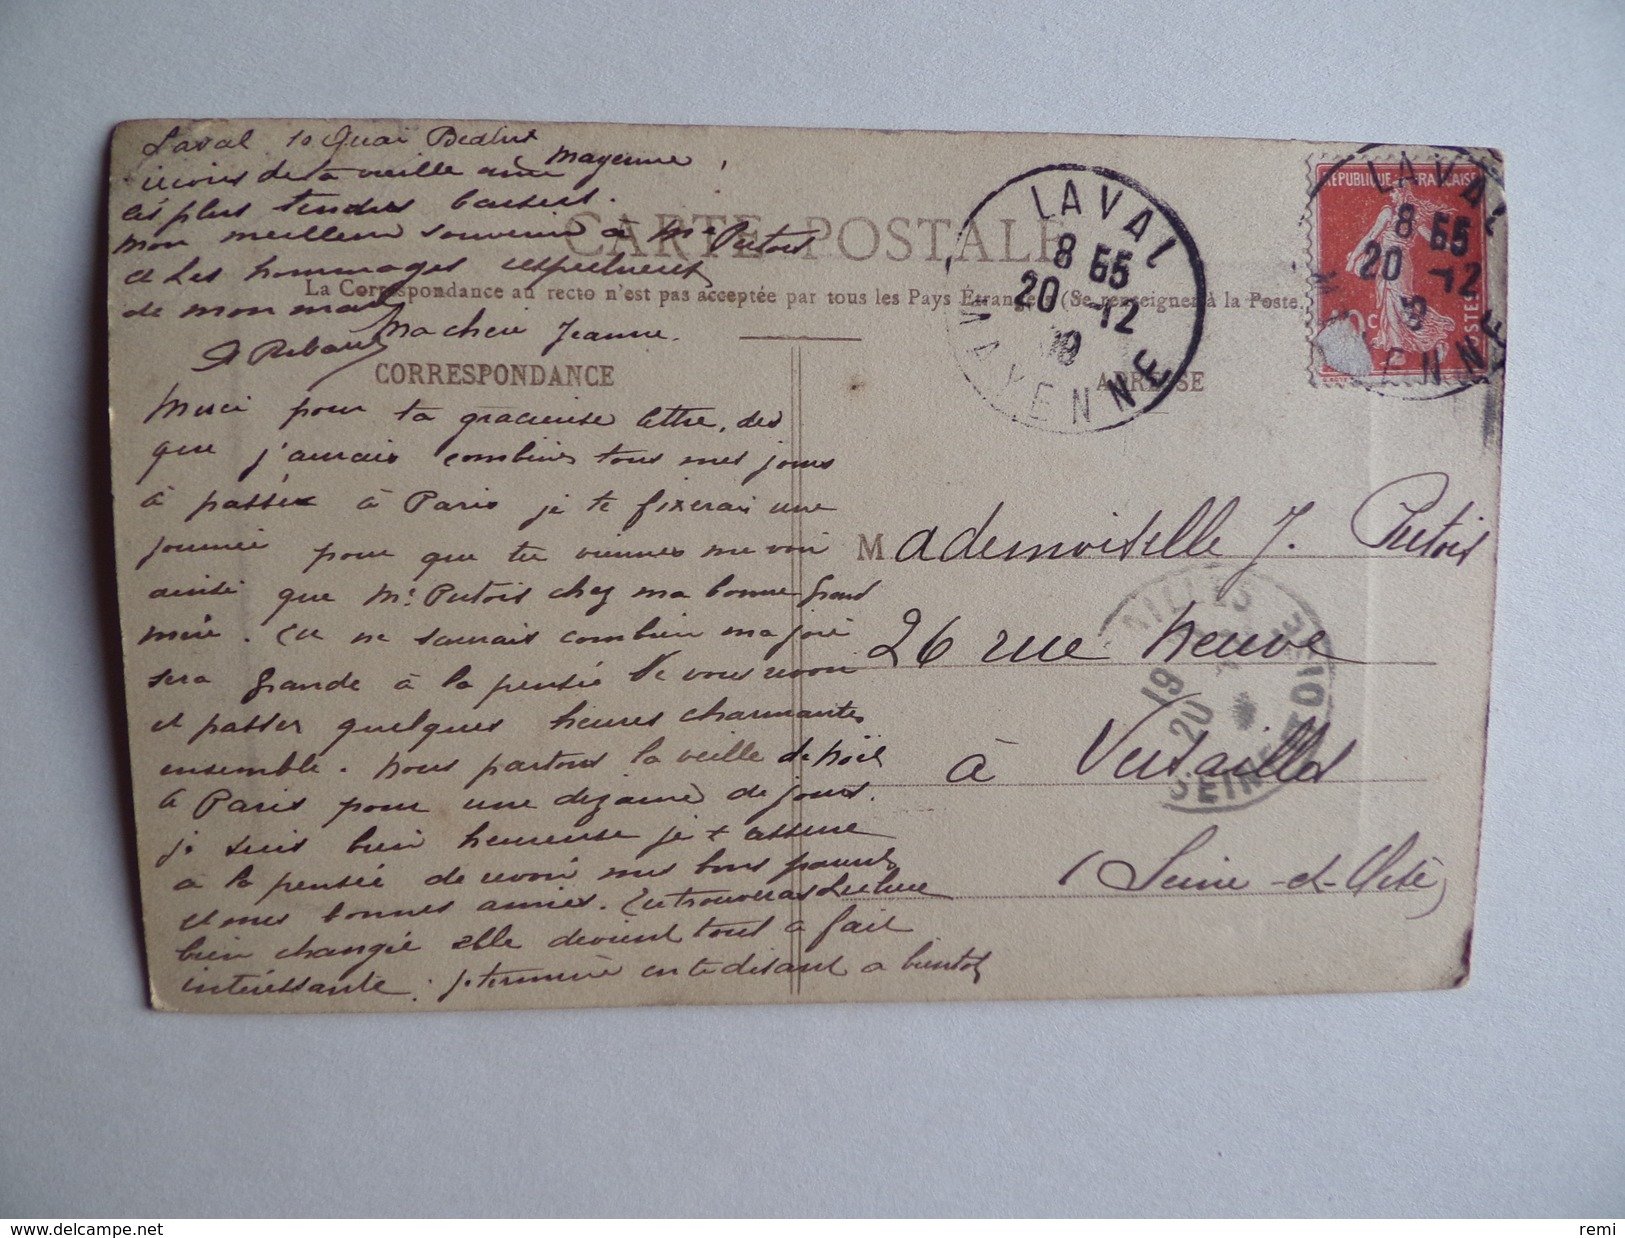 Laval 10 Quai
de ta vieille amie Mayenne
les plus tendres baisers.
mon meilleur souvenir à Mr Putois
et les hommages respectueux
de mon mari
CARTE POSTALE
La Correspondance au recto n'est pas acceptée par tous les Pays Étrangers (Se renseigner à la Poste.
CORRESPONDANCE
Ma chère Jeanne.
Merci pour ta gracieuse lettre, dès
que j'aurais combiné tous mes jours
à passer à Paris je te fixerai une
journée pour que tu viennes me voir
ainsi que Mr Putois chez ma bonne grand
mère. Tu ne saurais combien ma joie
sera grande à la pensée de vous revoir
et passer quelques heures charmantes
ensemble. Nous partons la veille de Noël
à Paris pour une dizaine de jours.
je suis bien heureuse je t assure
a la pensée de revoir mes bons parents
et mes bonnes amies. Tu trouveras
bien changée elle devient tout a fait
intéressante. je termine en te disant a bientot
ADRESSE
Mademoiselle J. Putois
26 rue Neuve
à Versailles
(Seine-et-Oise)
LAVAL
8 55
20 -12
MAYENNE
RÉPUBLIQUE FRANÇAISE
POSTES
10c
LAVAL
8 55
20 -12
MAYENNE
19
20
SEINE ET OISE
delcampe.net
remi